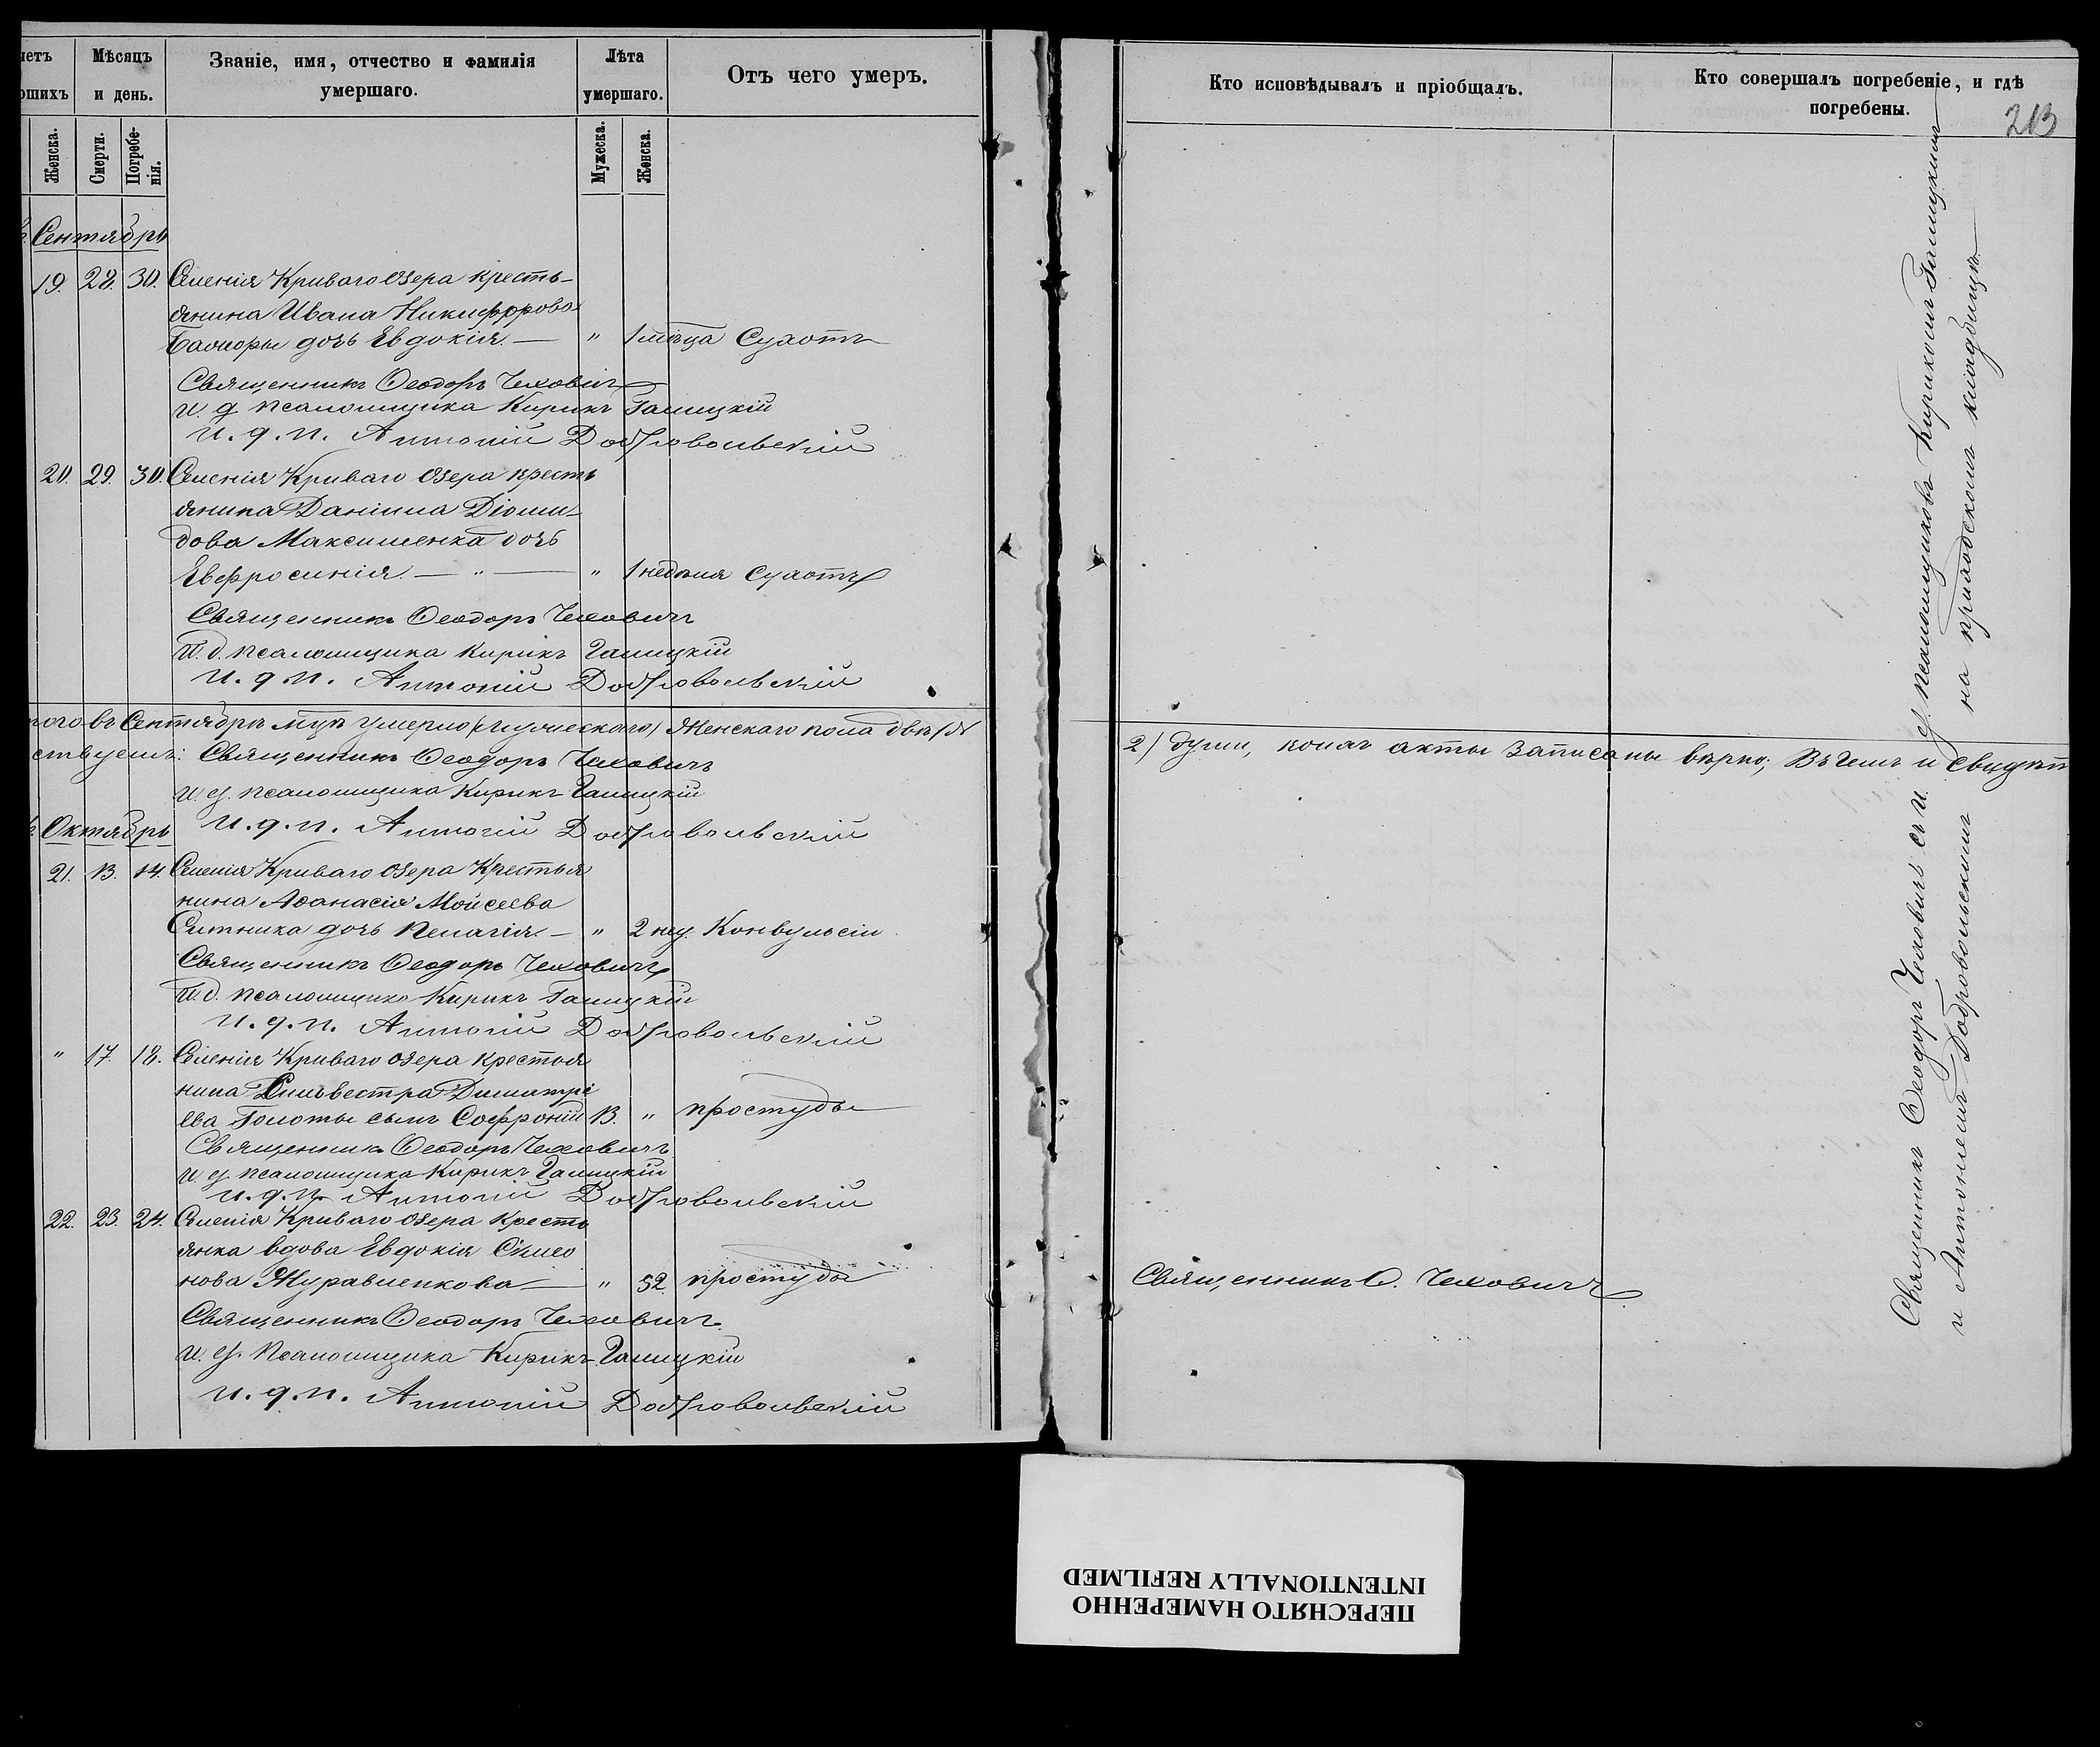 четъ
Мѣсяцъ
Званіе, имя, отчество и фамилія
Лѣта
Отъ чего умеръ.
ршихъ
и день.
умершаго.
умершаго.
Женска.
Смерти.
Погребе-
нія.
Мужеска.
Женска.
Сентябрь
19. 28. 30. Селенія Криваго Озера кресть-
янина Ивана Никифорова
дочь Евдокія. — " 1 мѣца Сухотъ
Священникъ Ѳеодоръ Чеховичъ
И. д. псаломщика Кирикъ Галицкій
и. д. п. Антоній Добровольскій
20. 29. 30. Селенія Криваго Озера кресть
янина Даніила Діоми-
дова Максименка дочь
Евфросинія. — " — " 1 недѣля Сухотъ
Священникъ Ѳеодоръ Чеховичъ
И. д. псаломщика Кирикъ Галицкій
и. д. п. Антоній Добровольскій
того въ Сентябрѣ мцѣ умерло (мужескаго) Женскаго пола двѣ
ствуемъ: Священникъ Ѳеодоръ Чеховичъ
И. д. псаломщика Кирикъ Галицкій
и. д. п. Антоній Добровольскій
Октябрь
21. 13. 14. Селенія Криваго Озера Крестья
нина Аѳанасія Мойсеева
Ситника дочь Пелагія. — " 2 нед. Конвульсіи
Священникъ Ѳеодоръ Чеховичъ
И. д. псаломщика Кирикъ Галицкій
и. д. п. Антоній Добровольскій
" 17. 18. Селенія Криваго озера крестья
нина Сильвестра Димитрі
ева Голоты сынъ Софроній 13. " простуды
Священникъ Ѳеодоръ Чеховичъ
И. д. псаломщика Кирикъ Галицкій
и. д. п. Антоній Добровольскій
22. 23. 24. Селенія Криваго Озера Кресть
янка вдова Евдокія Симео
нова Журавленкова — " 52. простуды
Священникъ Ѳеодоръ Чеховичъ.
И. д. псаломщика Кирикъ Галицкій
и. д. п. Антоній Добровольскій
Кто исповѣдывалъ и пріобщалъ.
Кто совершалъ погребеніе, и гдѣ
погребены.
213
2) души, коихъ акты записаны вѣрно; Въ чемъ и свидѣт
Священникъ Ѳ. Чеховичъ
Священникъ Ѳеодоръ Чеховичъ съ и. д. псаломщиковъ Кирикомъ Галицкимъ
и Антоніемъ Добровольскимъ на приходскомъ кладбищѣ
ПЕРЕСНЯТО НАМЕРЕННО
INTENTIONALLY REFILMED